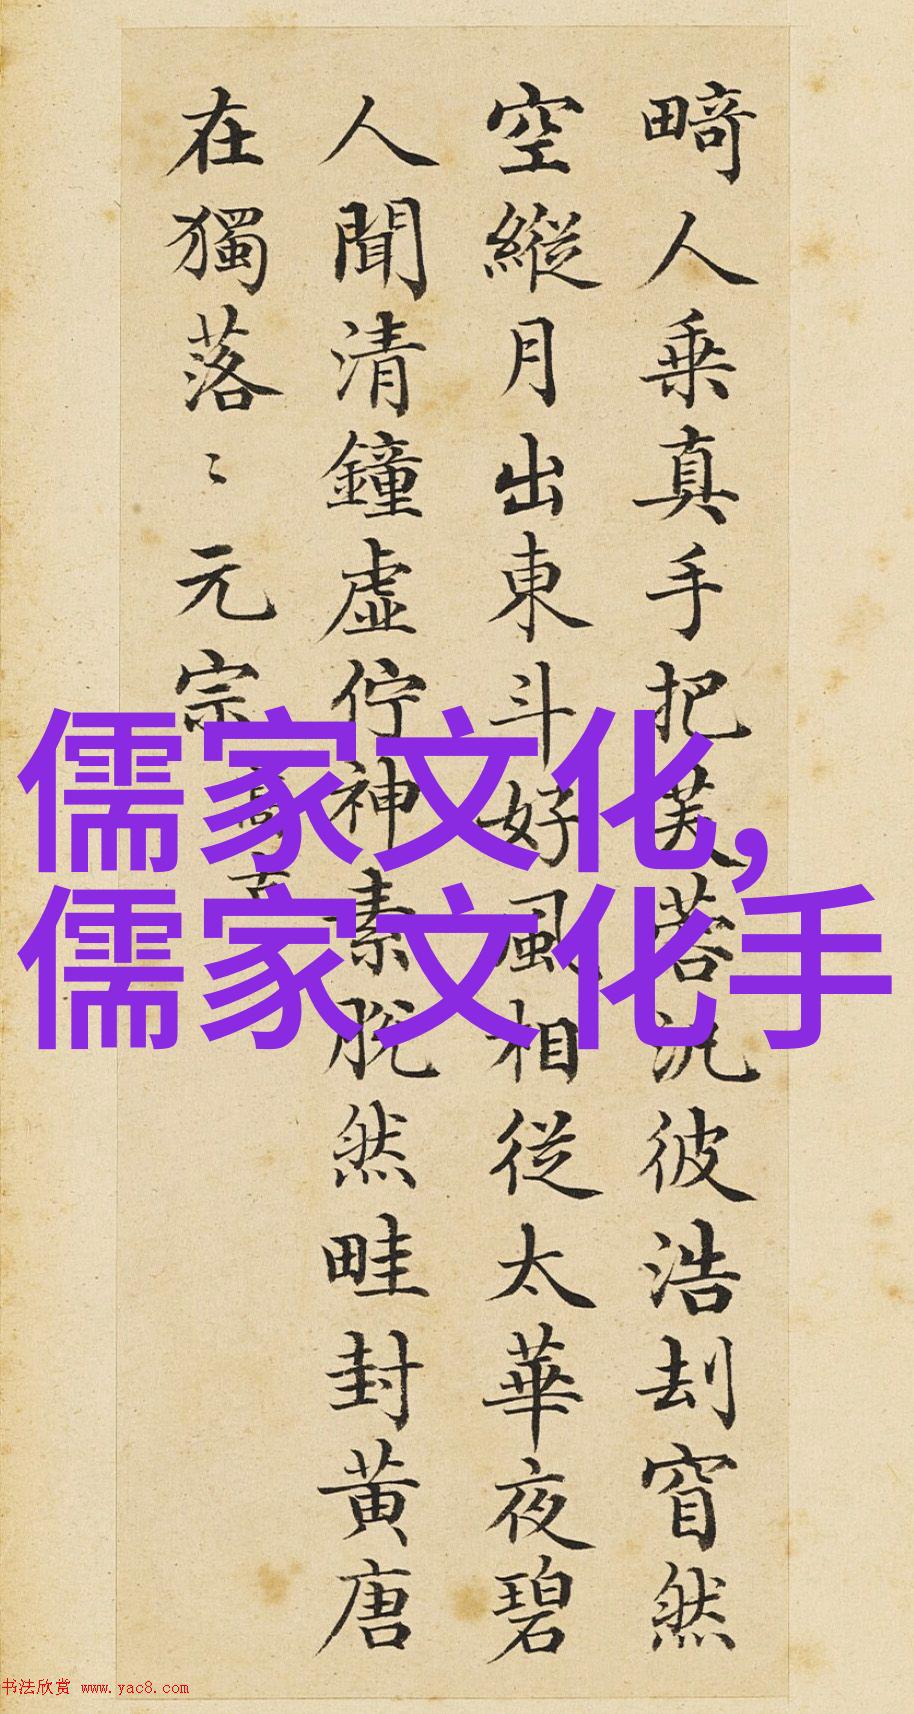 畸人乘真手把芙蓉汎彼浩刦窅然
空縱月出東斗好風相從太華夜碧
人聞清鐘虛佇神素脫然畦封黃唐
在獨落〻元宗 高古
儒家文化,
儒家文化手
书法欣赏 www.yac8.com